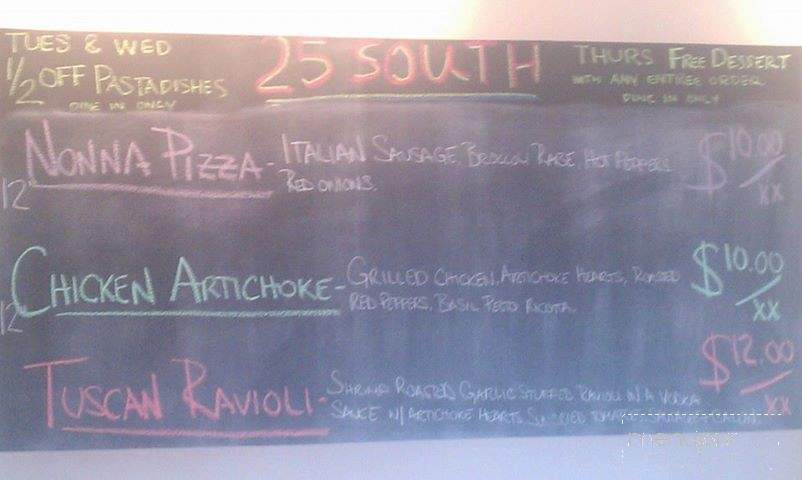 TUES & WED
1/2 OFF PASTADISHES
DINE IN ONLY
25 SOUTH
THURS FREE DESSERT
WITH ANY ENTREE ORDER
DINE IN ONLY
12 NONNA PIZZA - ITALIAN SAUSAGE, BROCCOLI RABE, HOT PEPPERS
RED ONIONS.
$10.00/XX
12 CHICKEN ARTICHOKE - GRILLED CHICKEN, ARTICHOKE HEARTS, ROASTED
RED PEPPERS, BASIL PESTO RICOTA.
$10.00/XX
TUSCAN RAVIOLI - SHRIMP ROASTED GARLIC STUFFED RAVIOLI IN A VODKA
SAUCE W/ ARTICHOKE HEARTS, SUNDRIED
$12.00/XX